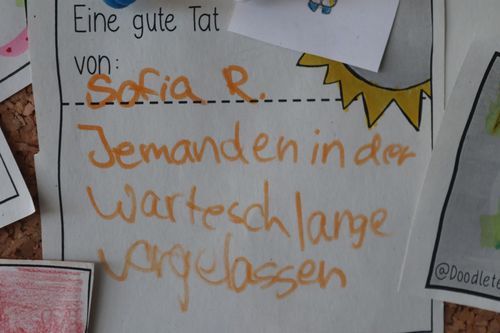 Eine gute Tat
von:
Sofia R.
Jemanden in der
Warteschlange
vorgelassen
@Doodlete